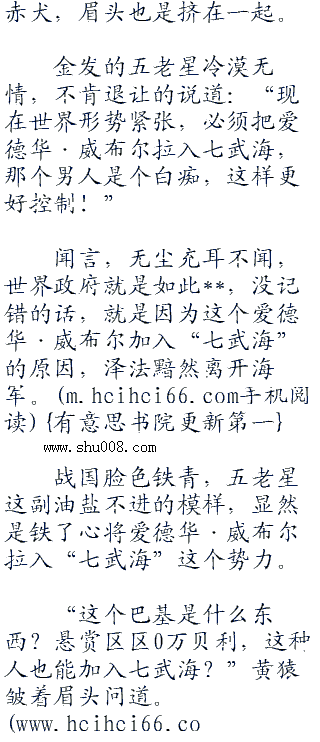 赤犬，眉头也是挤在一起。
金发的五老星冷漠无
情，不肯退让的说道：“现
在世界形势紧张，必须把爱
德华·威布尔拉入七武海，
那个男人是个白痴，这样更
好控制！”
闻言，无尘充耳不闻，
世界政府就是如此**，没记
错的话，就是因为这个爱德
华·威布尔加入“七武海”
的原因，泽法黯然离开海
军。(m.hcihci66.com手机阅
读){有意思书院更新第一}
www.shu008.com
战国脸色铁青，五老星
这副油盐不进的模样，显然
是铁了心将爱德华·威布尔
拉入“七武海”这个势力。
“这个巴基是什么东
西？悬赏区区0万贝利，这种
人也能加入七武海？”黄猿
皱着眉头问道。
(www.hcihci66.co